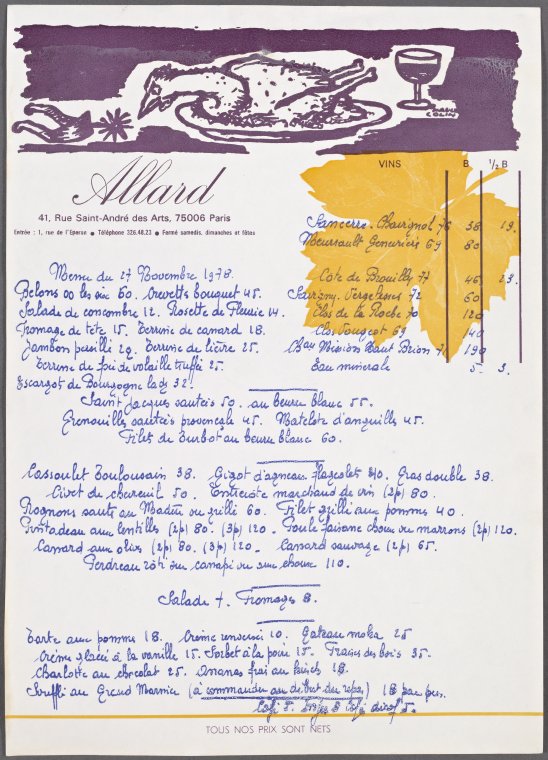 Allard
41, Rue Saint-André des Arts, 75006 Paris
Entrée : 1, rue de l'Eperon • Téléphone 326.48.23 • Fermé samedis, dimanches et fêtes
VINS B ½ B
Sancerre. Chavignol 76 58 19.
Meursault Genevrières 69 80
Cote de Brouilly 77 46 23.
Savigny. Vergelesses 72 60
Clos de la Roche 70 120
Clos Vougeot 69 140
Chau Mission Haut Brion 71 190
Eau minerale 5 3.
Menu du 27 Novembre 1978.
Belons 00 les six 60. Crevette bouquet 45.
Salade de concombre 12. Rosette de Fleurie 14.
Fromage de tête 15. Terrine de canard 18.
Jambon persillé 22. Terrine de lièvre 25.
Terrine de foie de volaille truffée 25.
Escargot de Bourgogne la dz 32.
Saint Jacques sautées 50. au beurre blanc 55.
Grenouilles sautées provençale 45. Matelote d'anguilles 45.
Filets de Turbot au beurre blanc 60.
Cassoulet Toulousain 38. Gigot d'agneau flageolets Gras double 38.
Civet de chevreuil 50. Entrecôte marchand de vin (2p) 80.
Rognons sauté au Madère ou grillé 60. Filet grillé aux pommes 40.
Pintadeau aux lentilles (2p) 80. (3p) 120. Poule faisane choux ou marrons (2p) 120.
Canard aux olives (2p) 80. (3p) 120. Canard sauvage (2p) 65.
Perdreau rôti sur canapé ou aux choux 110.
Salade 7. Fromages 8.
Tarte aux pommes 18. Crème renversée 10. Gateau moka 25
Crème glacée à la vanille 15. Sorbet à la poire 15. Fraises des bois 35.
Charlotte au chocolat 25. Ananas frais au kirsch 18.
Soufflé au Grand Marnier (à commander au debut du repas) 18 par pers.
Café 5.
TOUS NOS PRIX SONT NETS